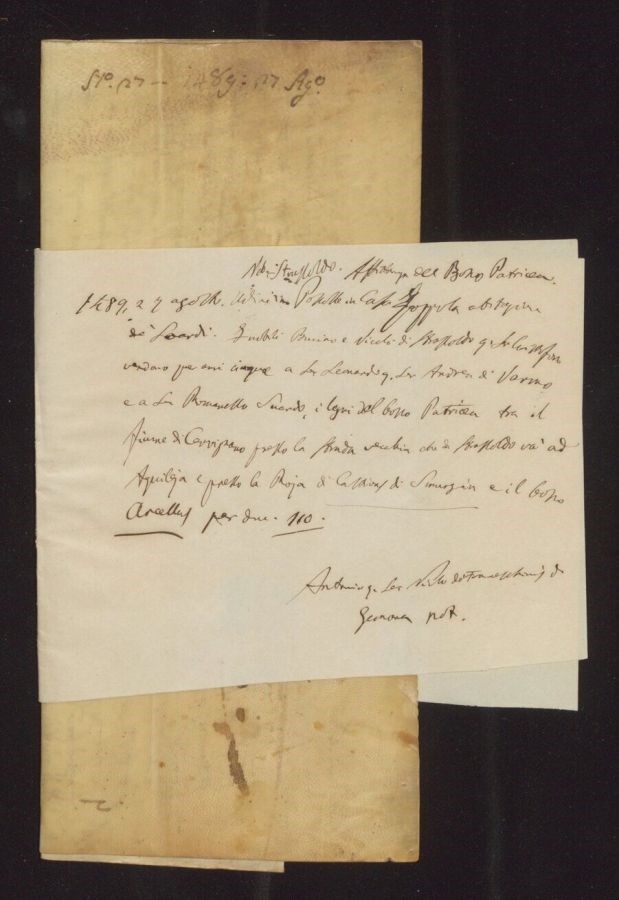 N° 27 — 1489. 27 Ago.
Nob. Strassoldo. Affittanza del Bosco Patriza.
1489, 27 agosto. Udine in Casa Zoppola abitazione
de' Suardi. I nobili e Nicolò di Strassoldo q.
vendono per anni cinque a Ser Leonardo q. Ser Andrea di Varmo
e a Ser Romanello Suardo, i legni del bosco Patriza tra il
fiume di Cervignano presso la strada vecchia che da Strassoldo va ad
Aquileja e presso la Roja di di e il bosco
Arcellus per duc. 110.
Antonio q. Ser di
Gemona not.